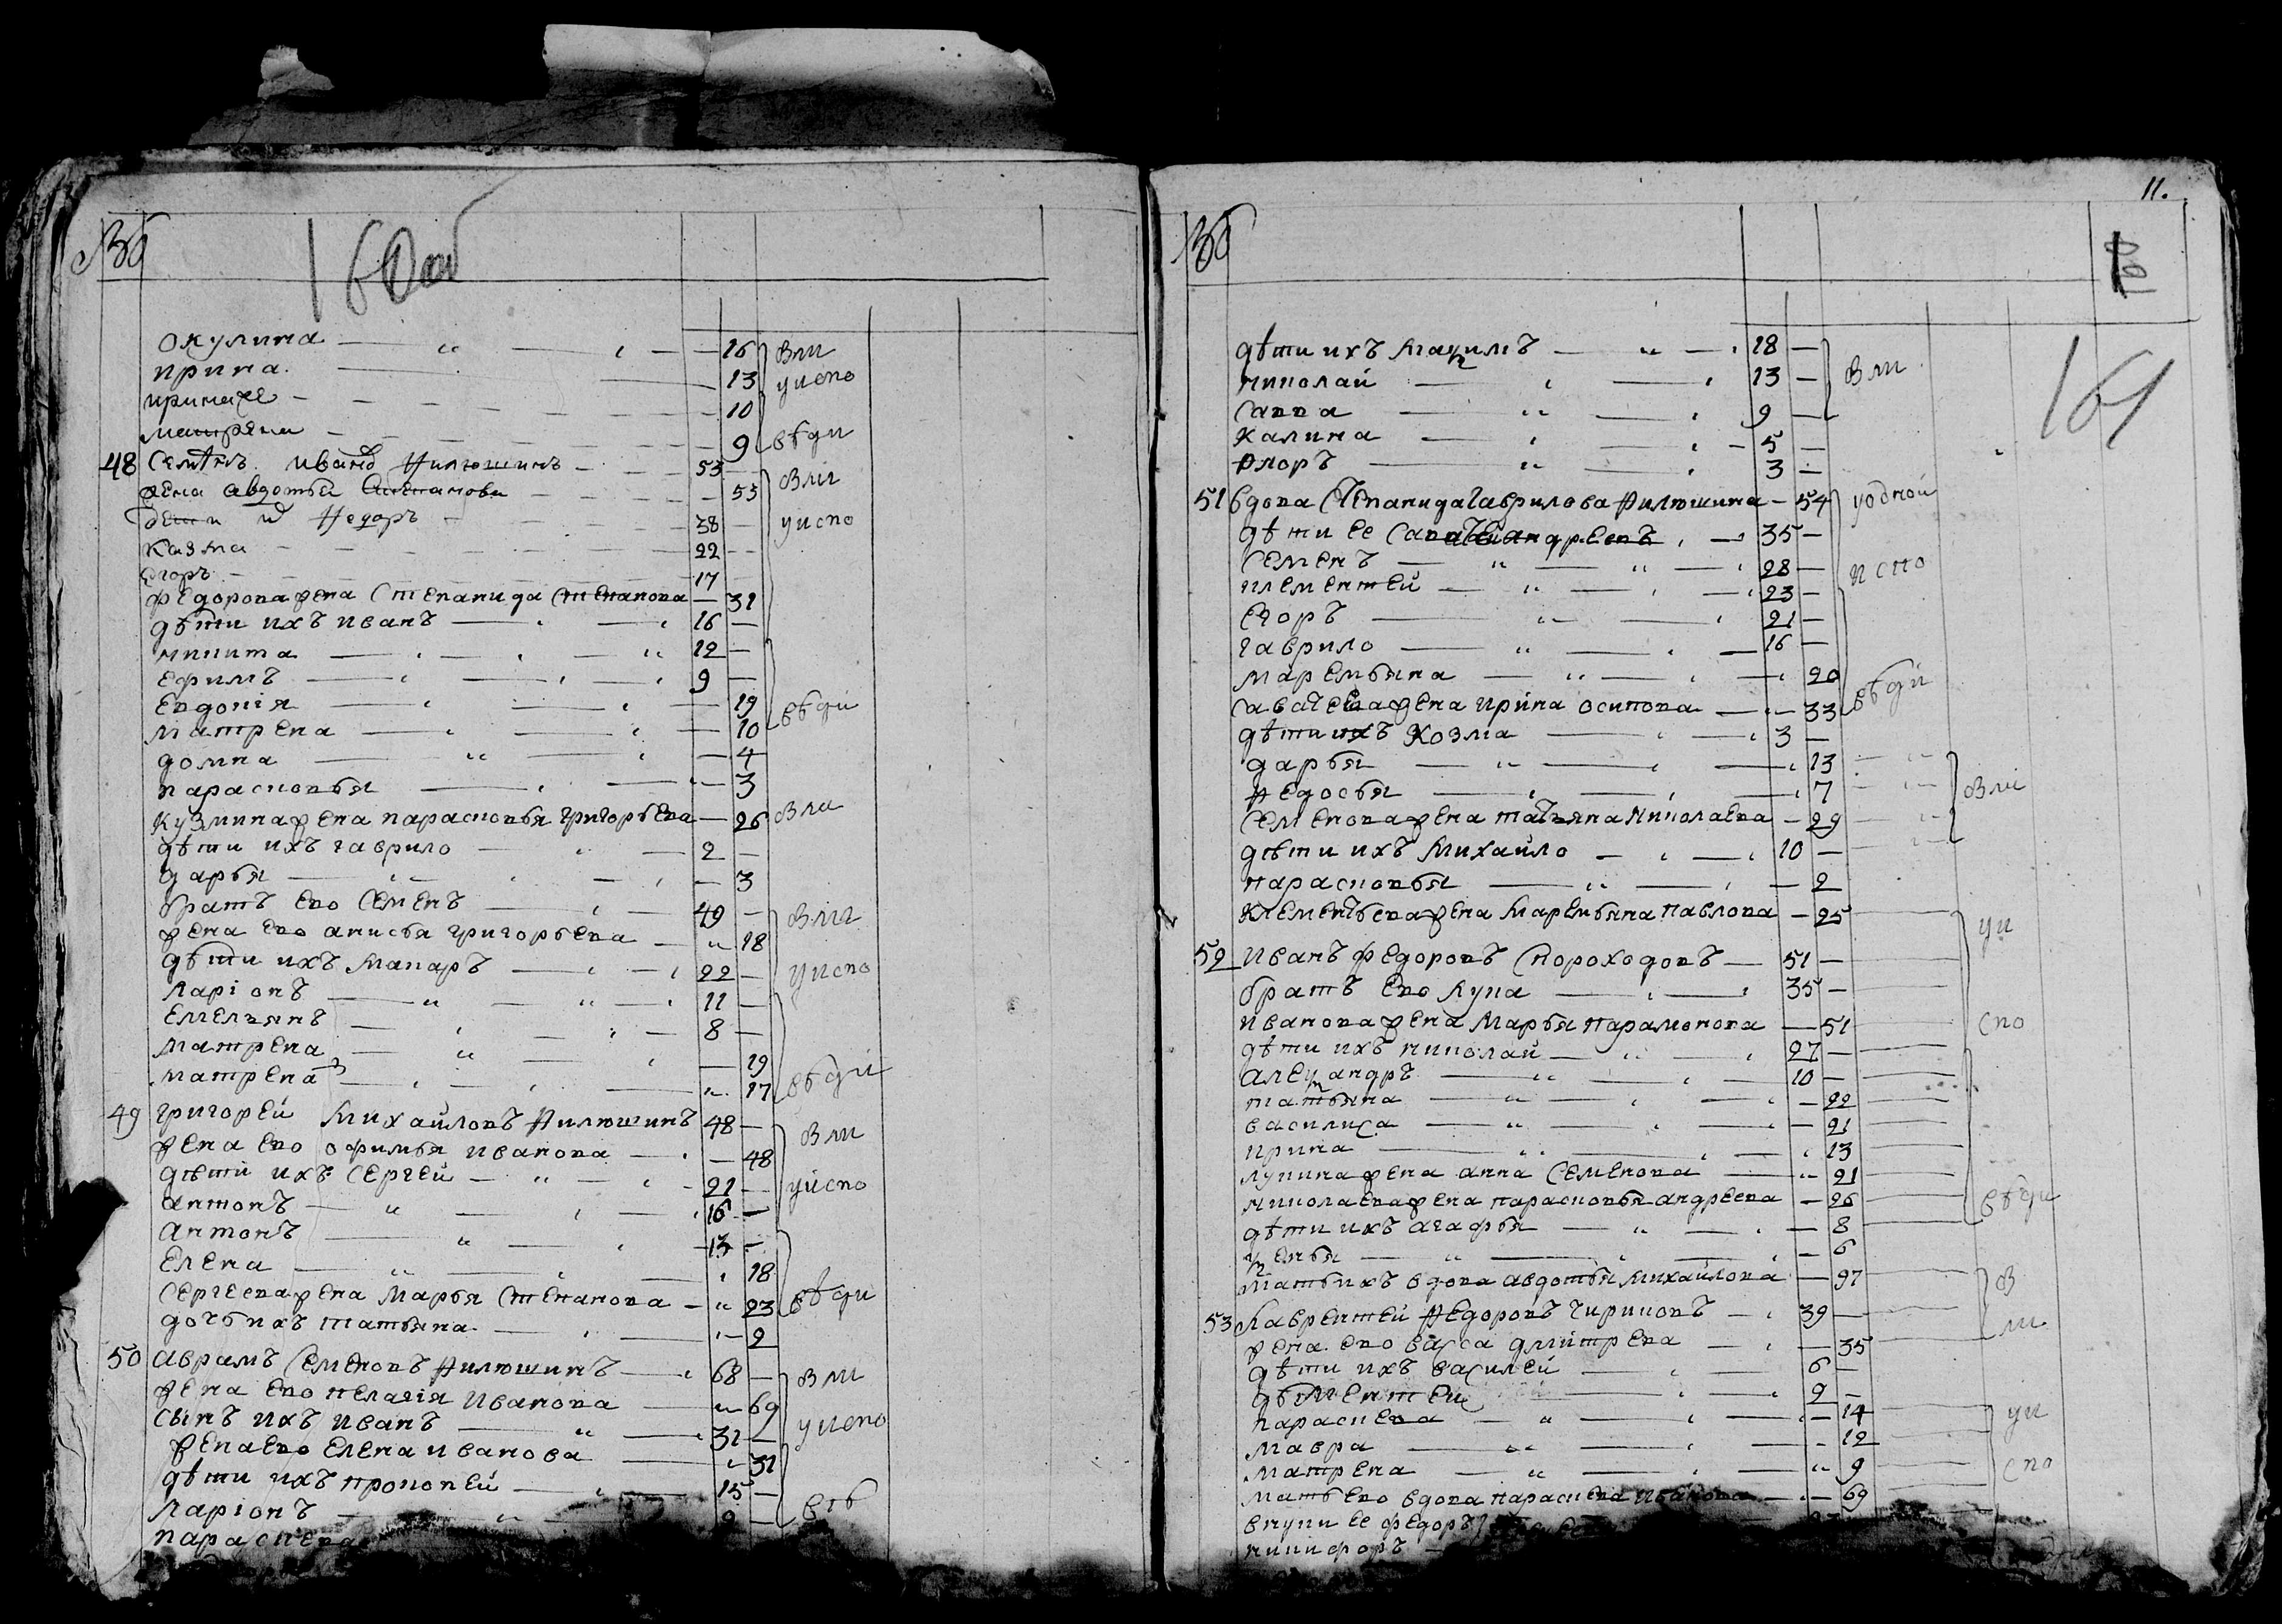 №
160об
окулина 16 были
ирина 13 у испо
ирина же 10
матрена 9 вѣди
48 Семенъ Иванъ Филюшинъ 53
жена авдотья Степанова 53 были
дети и Ѳедоръ 38 у испо
Казма 22
Егоръ 17
федорова жена Степанида Степанова 31
дѣти ихъ иванъ 16
никита 12
ефимъ 9
евдокія 19
матрена 10 вѣди
домна 4
парасковья 3
кузмина жена парасковья григорьева 26 были
дѣти ихъ гаврило 2
дарья 3
братъ ево Семенъ 49 были
жена ево анисья григорьева 18
дѣти ихъ макаръ 22 у испо
ларіонъ 11
емельянъ 8
матрена 19
матрена 17 вѣди
49 григорей михайловъ Филюшинъ 48
жена ево офимья иванова 48 были
дѣти ихъ Сергей 21 у испо
антонъ 16
антонъ 13
елена 18
Сергеева жена марья Степанова 23 вѣди
дочь ихъ татьяна 2
50 аврамъ Семеновъ Филюшинъ 68 были
жена ево пелагія иванова 69
Сынъ ихъ иванъ 31 у испо
жена ево елена иванова 31
дѣти ихъ прокопей 15
ларіонъ 9 вѣ
параскева
11.
№
161
дѣти ихъ макимъ 18
николай 13 были
Савва 9
Калина 5
Флоръ 3
51 вдова Степанида гаврилова Филюшина 54 у одной
дѣти ее Савва андреевъ 35
Семенъ 28 испо
клементей 23
Егоръ 21
гаврило 16
маремьяна 20
Саватеева жена ирина осипова 33 вѣди
дѣти ихъ Козма 3
дарья 13
Ѳедосья 7 были
Семенова жена татьяна николаева 29
дѣти ихъ михайло 10
парасковья 2
Клементьева жена маремьяна павлова 25
у и
52 иванъ федоровъ Скороходовъ 51
братъ ево лука 35
иванова жена марья парамонова 51 спо
дѣти ихъ николай 27
алеѯандръ 10
татьяна 22
василиса 21
ирина 13
лукина жена анна Семенова 21
николаева жена парасковья андреева 26 вѣди
дѣти ихъ агафья 8
ѯенья 6
мать ихъ вдова авдотья михайлова 97
53 лаврентей Ѳедоровъ чириковъ 39
жена ево васса дмитрева 35
дѣти ихъ василей 6
дементей 2
параскева 14 у и
мавра 12
матрена 9 спо
мать ево вдова параскева иванова 69
внуки ее федоръ
никифоръ